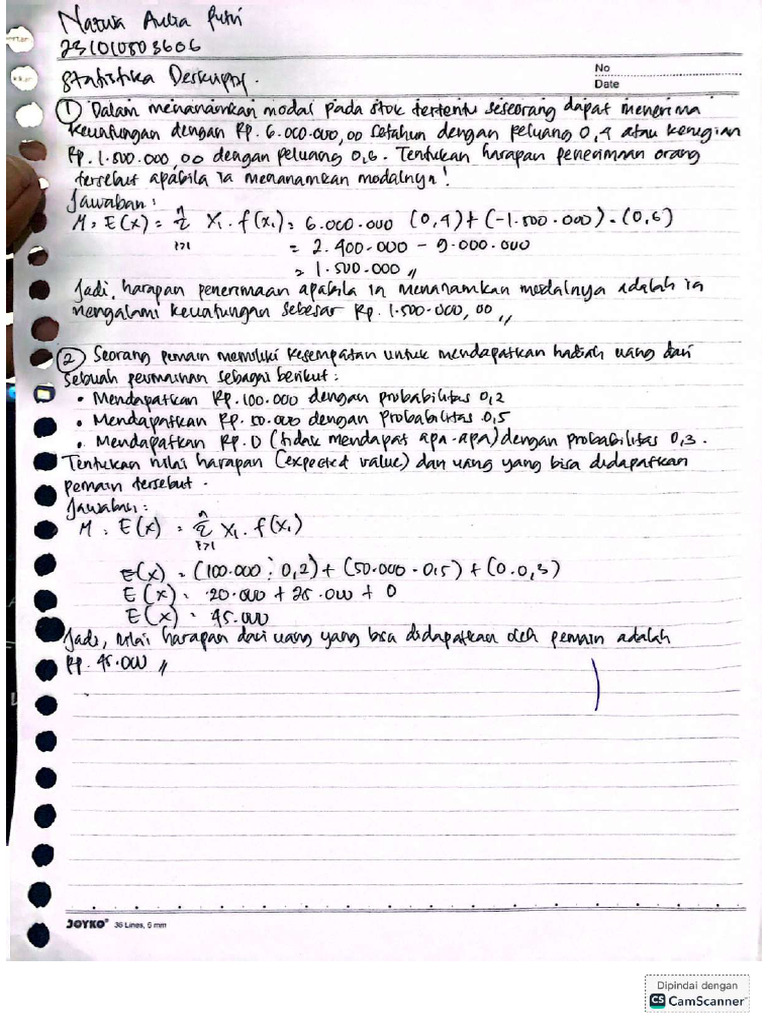 Natwa Aulia Putri
231010803606
No
Statistika Deskriptif.
Date
① Dalam menanamkan modal pada stok tertentu seseorang dapat menerima
keuntungan dengan Rp. 6.000.000,00 setahun dengan peluang 0,4 atau kerugian
Rp. 1.500.000,00 dengan peluang 0,6. Tentukan harapan penerimaan orang
tersebut apabila ia menanamkan modalnya!
Jawaban:
M = E(x) = n Σ i=1 Xi . f(xi) = 6.000.000 (0,4) + (-1.500.000) . (0,6)
= 2.400.000 - 9.000.000
= 1.500.000 //
Jadi, harapan penerimaan apabila ia menanamkan modalnya adalah ia
mengalami keuntungan sebesar Rp. 1.500.000,00 //
② Seorang pemain memiliki kesempatan untuk mendapatkan hadiah uang dari
sebuah permainan sebagai berikut:
• Mendapatkan Rp. 100.000 dengan probabilitas 0,2
• Mendapatkan Rp. 50.000 dengan probabilitas 0,5
• Mendapatkan Rp. 0 (tidak mendapat apa-apa) dengan probabilitas 0,3.
Tentukan nilai harapan (expected value) dari uang yang bisa didapatkan
pemain tersebut.
Jawaban:
M = E(x) = n Σ i=1 Xi . f(xi)
E(x) = (100.000 . 0,2) + (50.000 . 0,5) + (0.0,3)
E(x) = 20.000 + 25.000 + 0
E(x) = 45.000
Jadi, nilai harapan dari uang yang bisa didapatkan oleh pemain adalah
Rp. 45.000 //
JOYKO® 36 Lines, 6 mm
Dipindai dengan
CS CamScanner